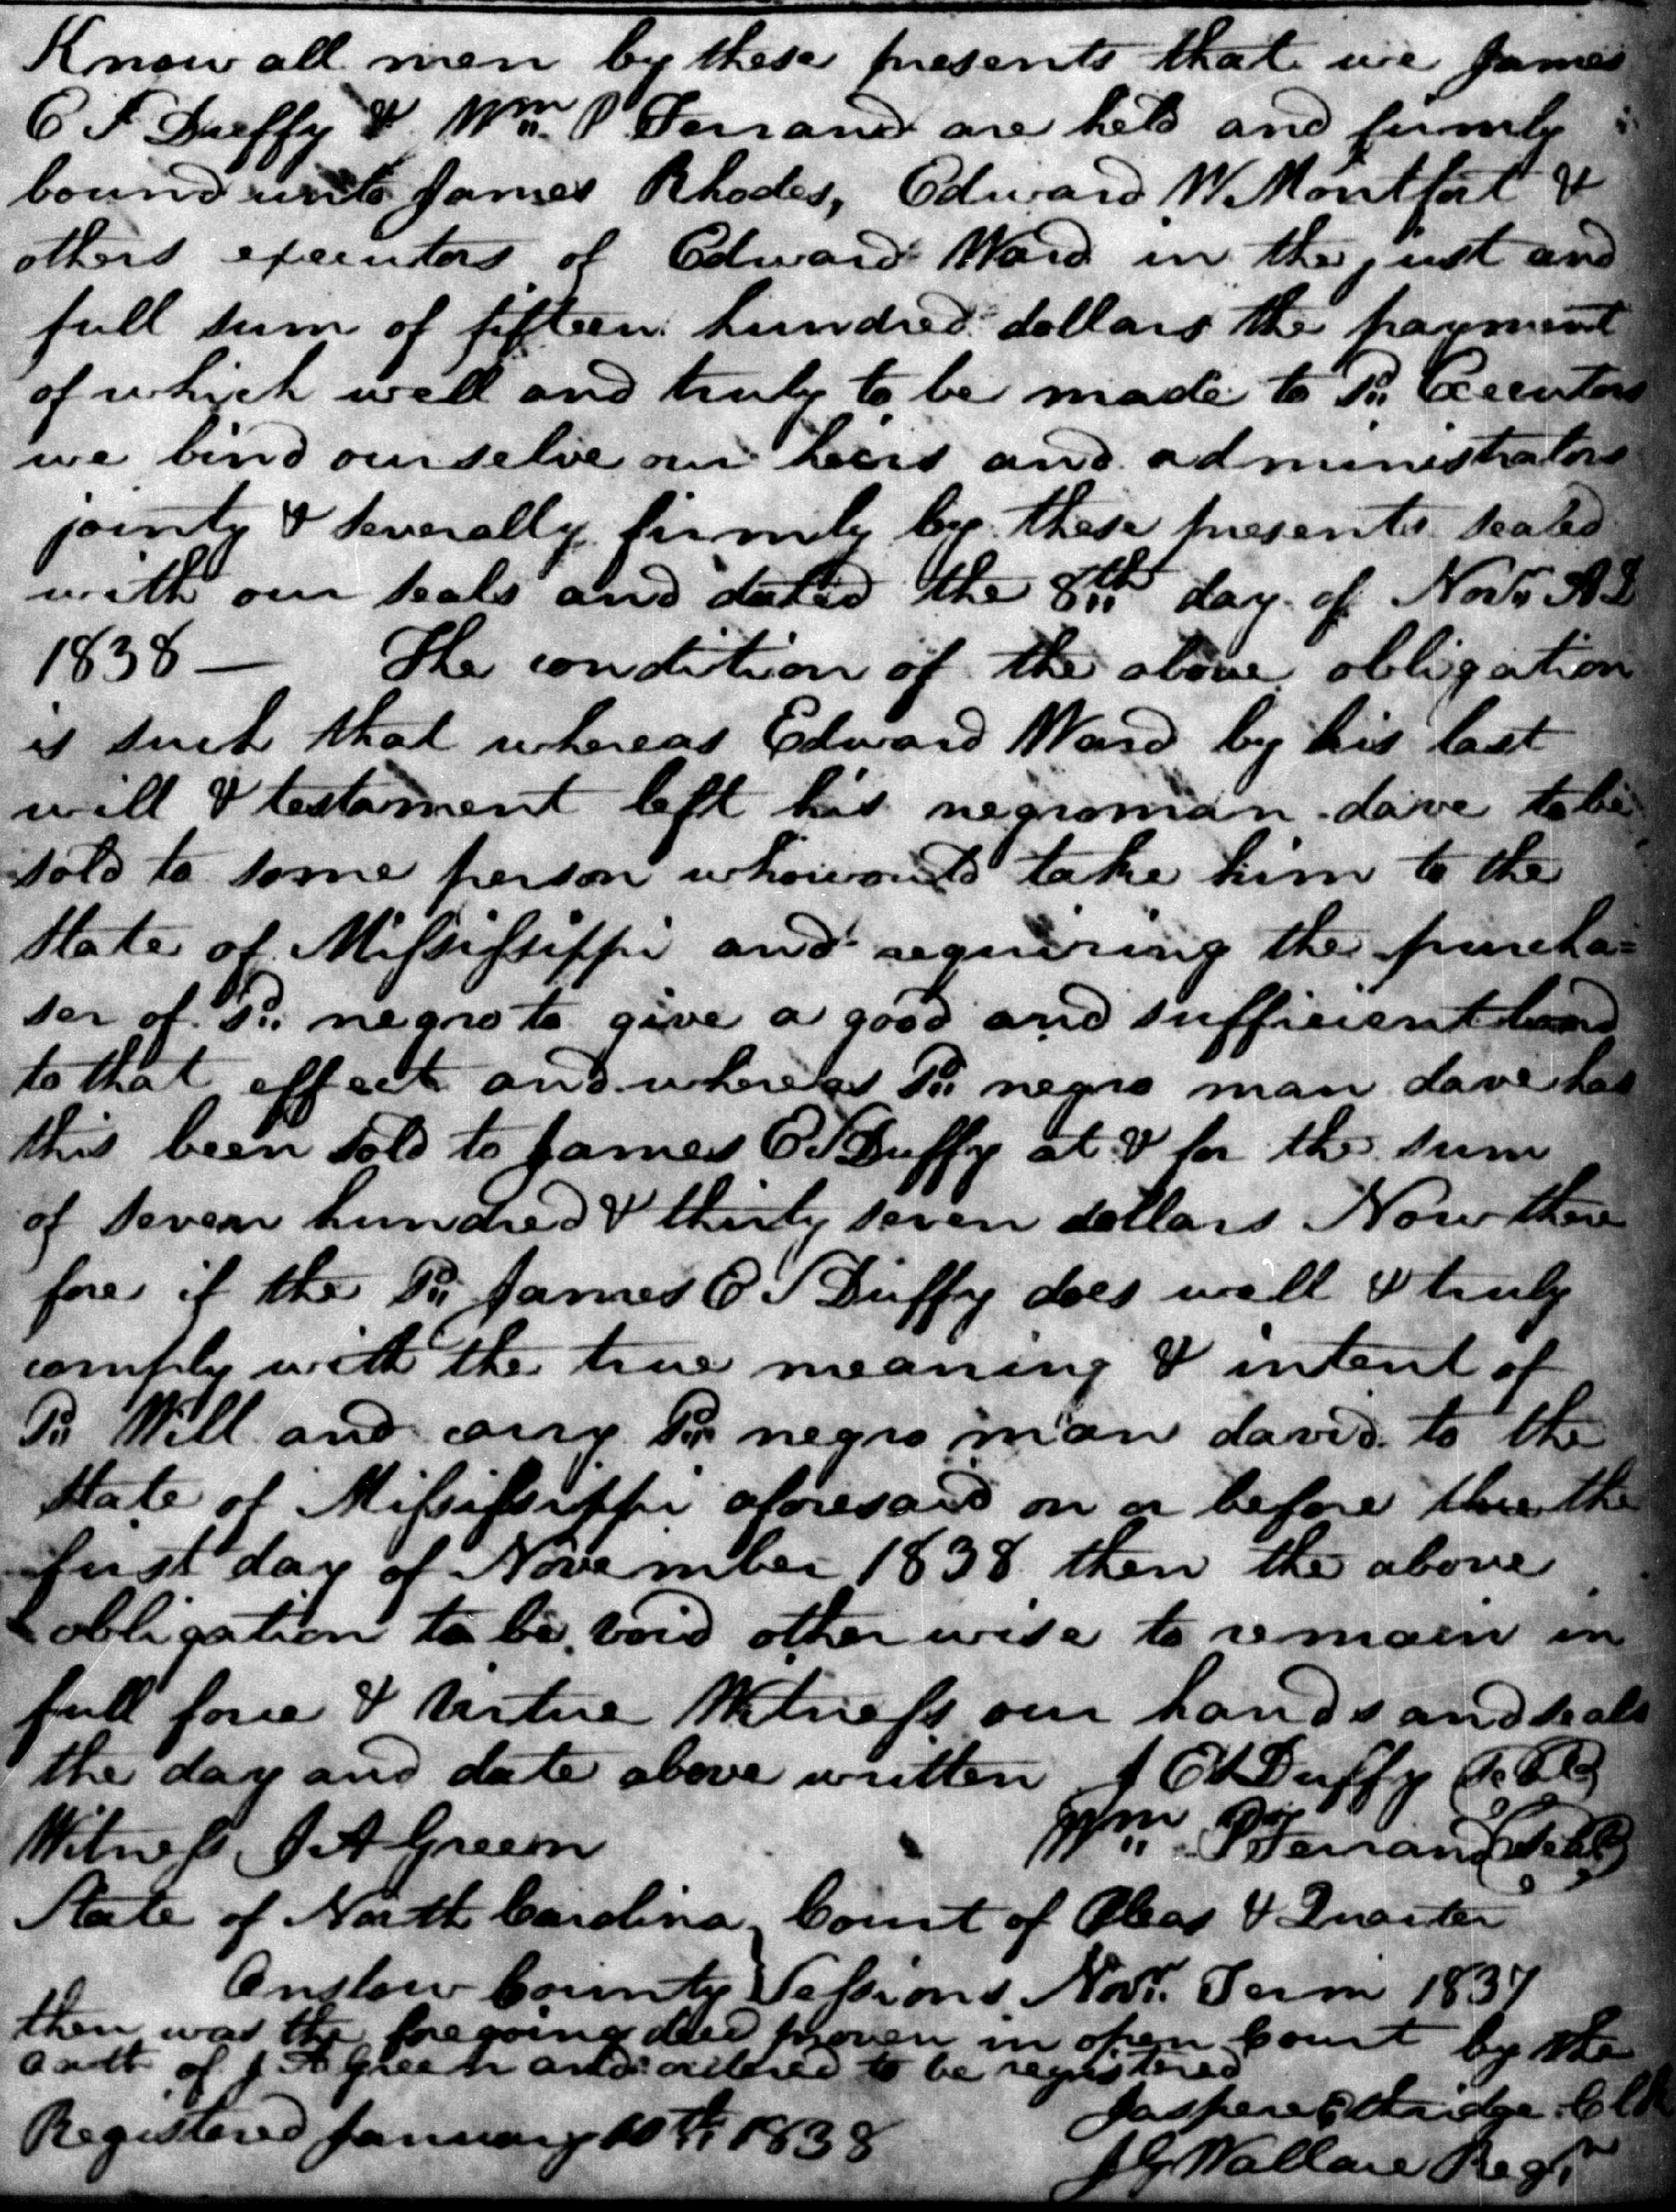 Know all men by these presents that we James
C F Duffy & Wm. P Ferrand are held and firmly
bound unto James Rhodes, Edward W Montfort &
others executors of Edward Ward in the just and
full sum of fifteen hundred dollars the payment
of which well and truly to be made to Sd. Executors
we bind ourselve our heirs and administrators
jointy & severally firmly by these presents sealed
with our seals and dated the 8th day of Novr AD
1838 — The condition of the above obligation
is such that whereas Edward Ward by his last
will & testament left his negroman dave to be
sold to some person who would take him to the
State of Mississippi and requiring the purcha=
ser of Sd. negro to give a good and sufficient bond
to that effect and whereas Sd. negro man dave has
this been sold to James E S Duffy at & for the sum
of seven hundred & thirty seven dollars Now there
fore if the Sd. James E S Duffy does well & truly
comply with the true meaning & intent of
Sd. Will and carry Sd. negro man david to the
State of Mississippi aforesaid on or before the
first day of November 1838 then the above
obligation to be void otherwise to remain in
full force & virtue Witness our hands and seals
the day and date above written J E S Duffy (Seal)
Wm. P Ferrand (Seal)
Witness J A Green
State of North Carolina Court of Pleas & Quarter
Onslow County Sessions Novr. Term 1837
then was the foregoing deed proven in open Court by the
oath of J A Green and ordered to be registered
Jasper Etheridge Clk
Registered January 10th 1838
J G Wallace Regr